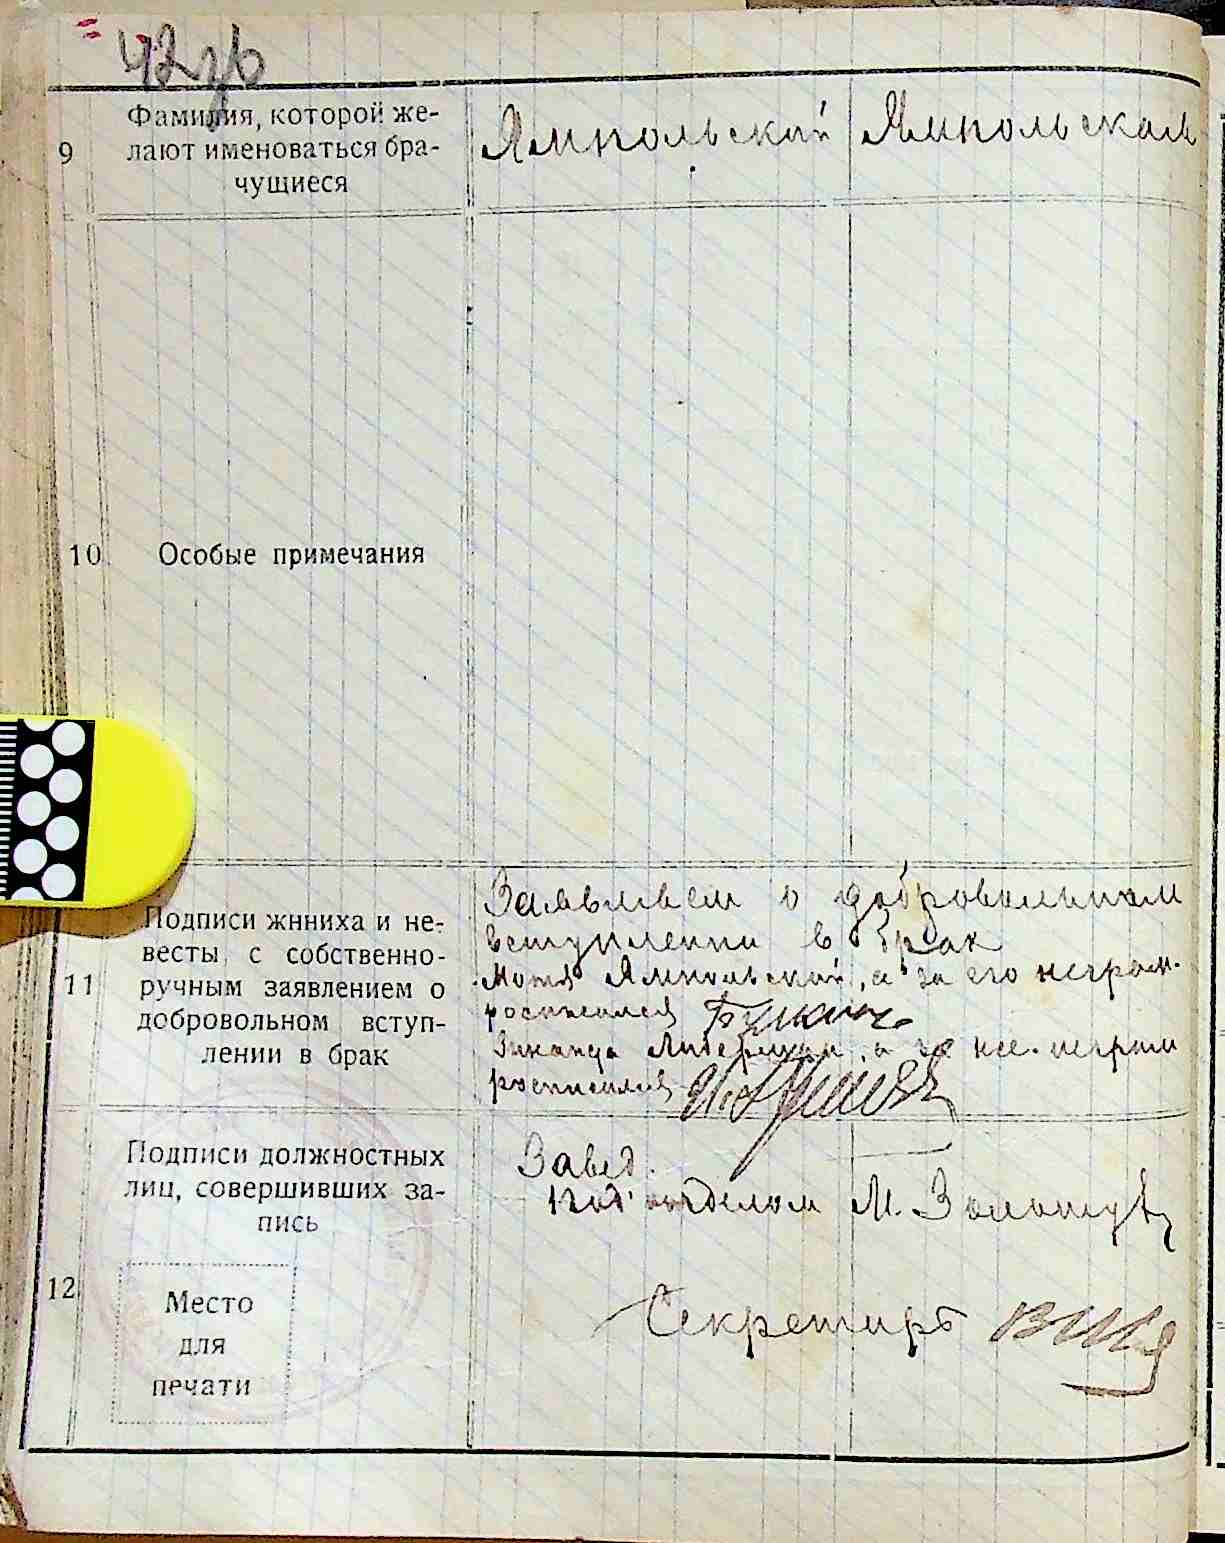 42
9
Фамилия, которой же-
лают именоваться бра-
чущиеся
Ямпольский
Ямпольская
10
Особые примечания
11
Подписи жнниха и не-
весты с собственно-
ручным заявлением о
добровольном вступ-
лении в брак
Заявляем о добровольном
вступлении в брак
Мотя Ямпольский, а за его неграм.
росписался
а за нее неграм
росписался
12
Подписи должностных
лиц, совершивших за-
пись
Место
для
печати
Завед.
подотделом М.
Секретарь